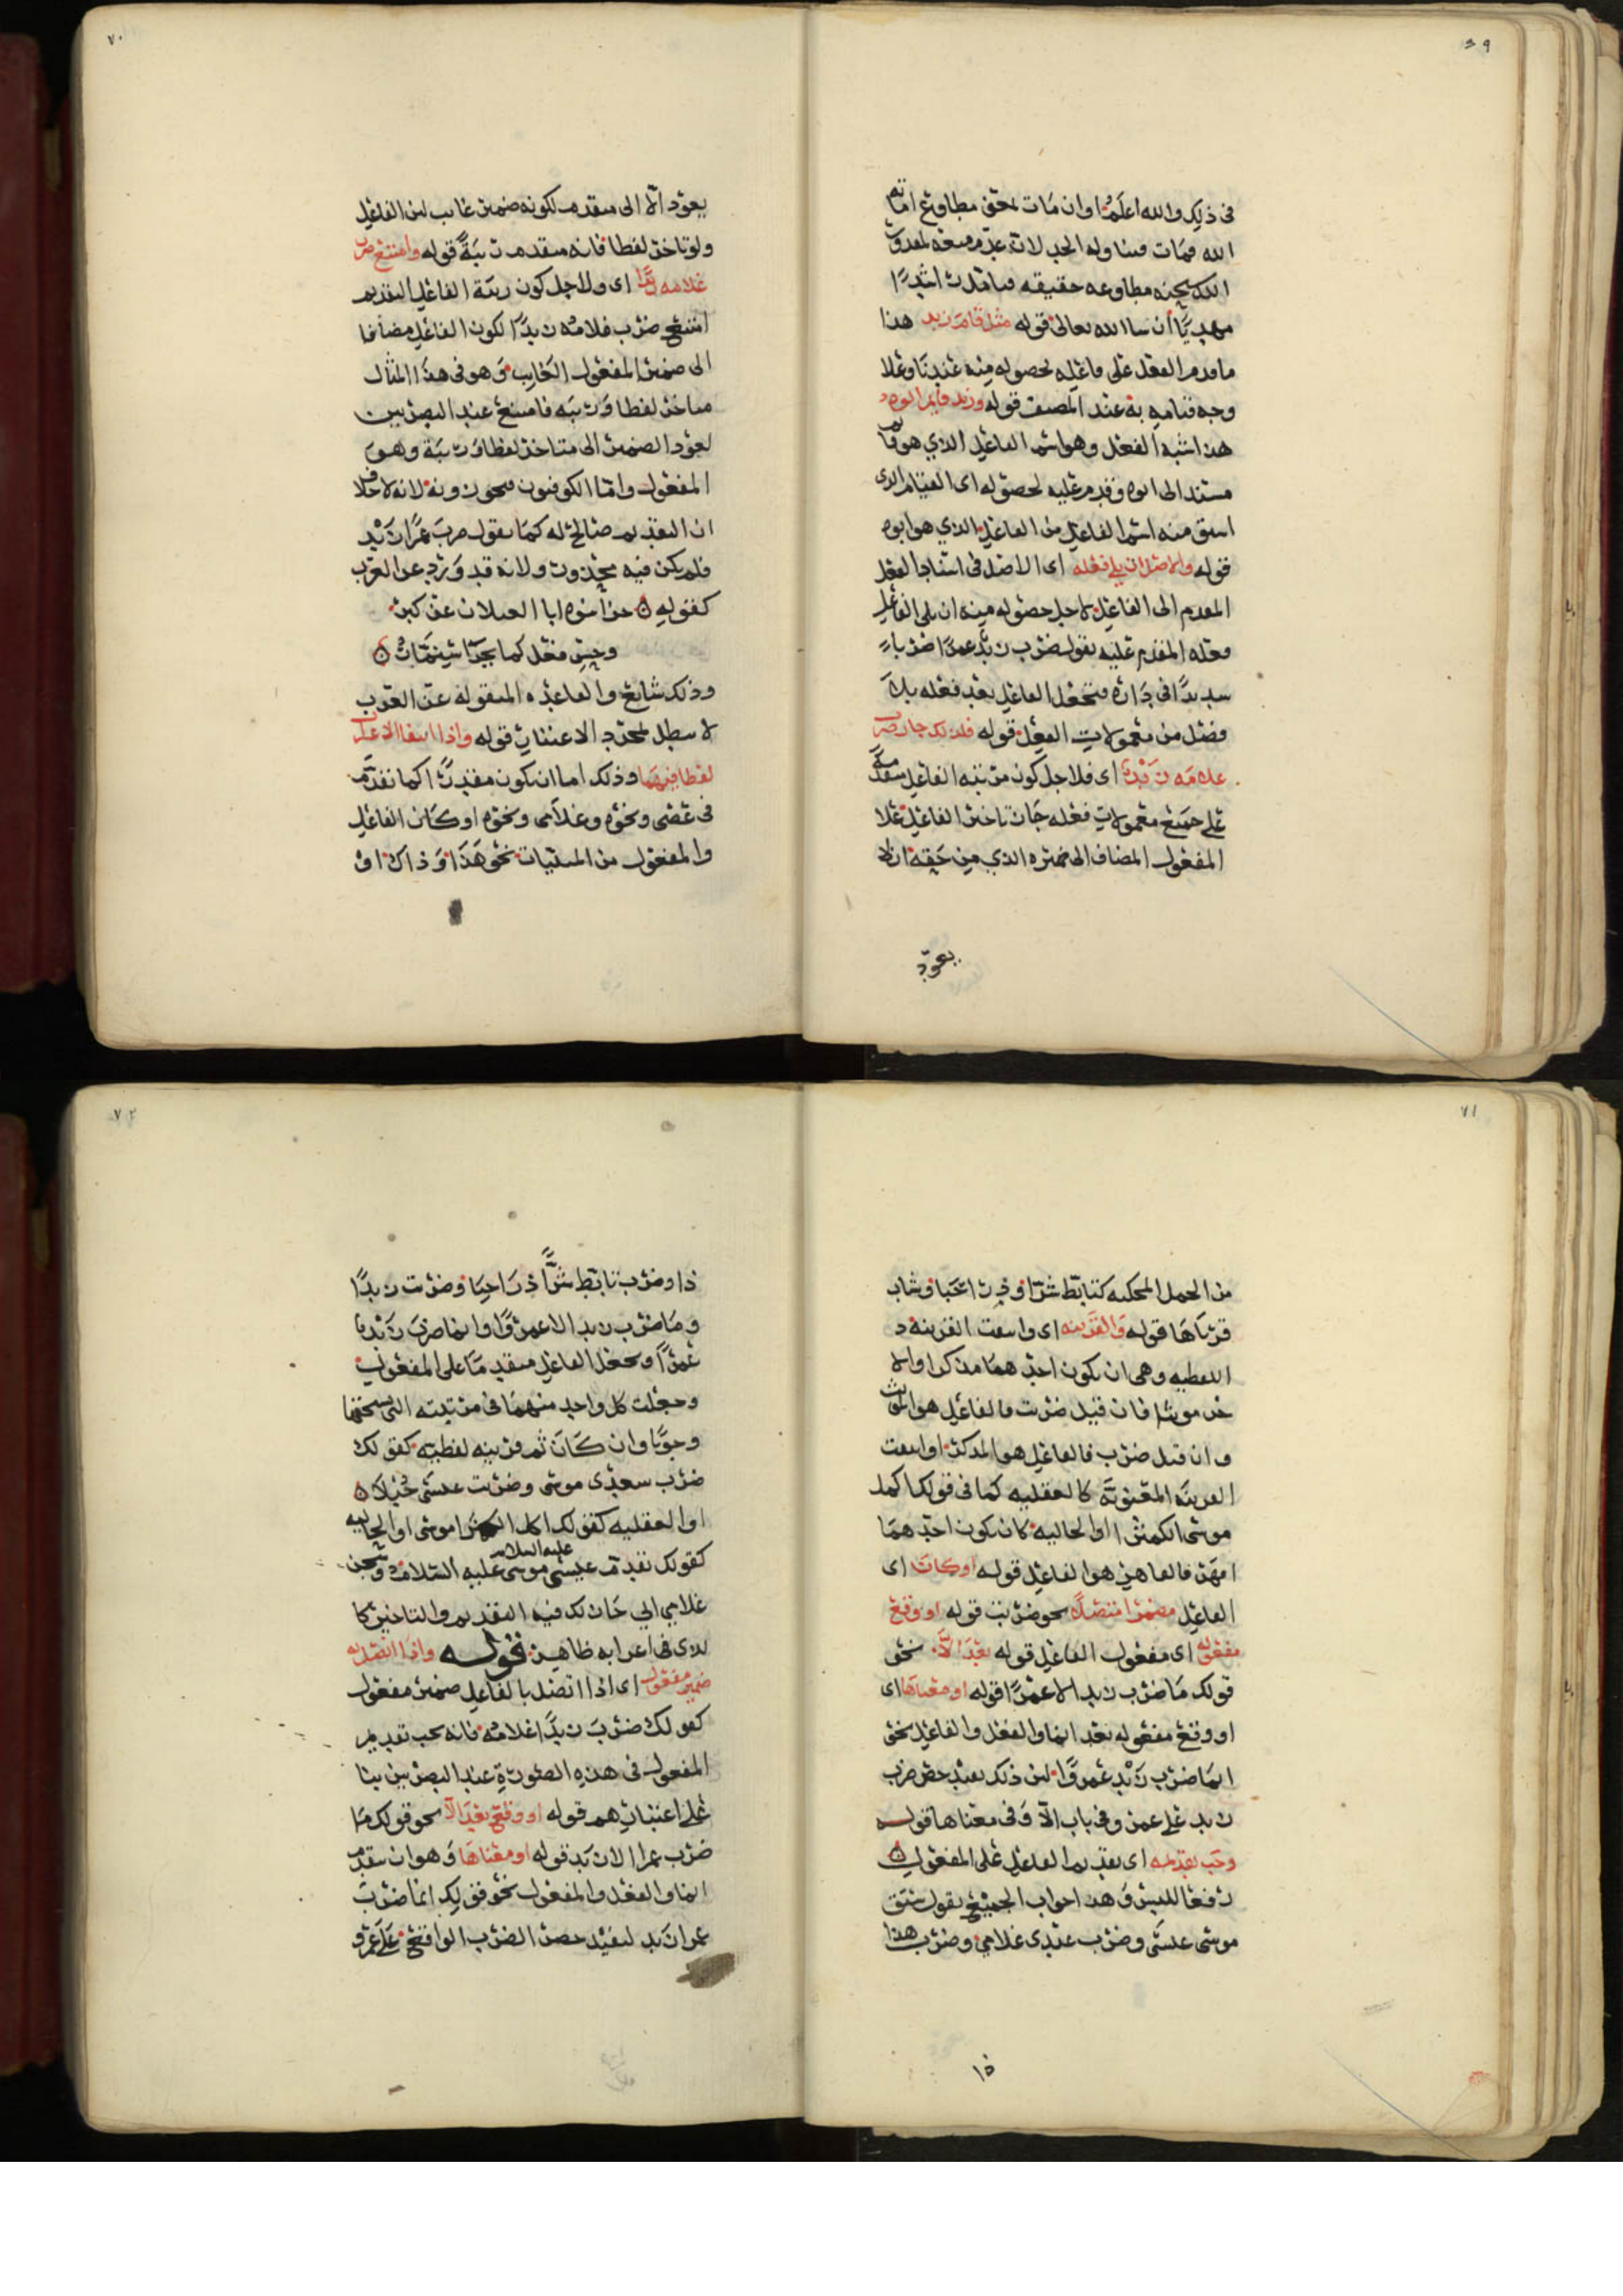 ٦٩
فى ذلك والله اعلم او ان مات محقق مطاوع اماته
الله فمات فيتناوله الحد لانه عدم
الله مطاوعه حقيقه فتامله راشدًا
مهديًّا ان شاالله تعالى قوله مثل قام زيد هذا
ما قدم الفعل على فاعله لحصوله منه عندنا وعلا
وجه قيامه به عند المصنف قوله وزيد قايم ابوه
هذا شبه الفعل وهو اسم الفاعل الذي هو قايم
مسند الى ابوه وقدم عليه لحصوله اى القيام الذى
اشتق منه اسم الفاعل من الفاعل الذي هو ابوه
قوله والاصل ان يلى فعله اى الاصل فى اسناد الفعل
المقدم الى الفاعل لاجل حصوله منه ان يلى الفاعل
فعله المقدم عليه تقول ضرب زيد عمرًا ضربا
شديدًا فى داره فتجعل الفاعل بعد فعله بلا
فصل من معمولات الفعل قوله فلذلك جاز ضرب
غلامه زيد اى فلاجل كون مرتبه الفاعل متقدمه
على جميع معمولات فعله جاز تاخير الفاعل علا
المفعول المضاف الى ضميره الذي من حقه ان لا
يعود
٧٠
يعود الا الى متقدم لكونه ضمير غايب لان الفاعل
ولو تاخر لفظا فانه متقدم رتبة قوله وامتنع ضرب
غلامه زيدًا اى ولاجل كون رتبة الفاعل التقديم
امتنع ضرب غلامه زيدًا لكون الفاعل مضافا
الى ضمير المفعول الغايب وهو فى هذا المثال
متاخر لفظا ورتبه فامتنع عند البصريين
لعود الضمير الى متاخر لفظا ورتبة وهو
المفعول واما الكوفيون فيجوزونه لانه لا خلاف
ان التقديم صالح له كما تقول ضرب عمرًا زيد
فلم يكن فيه محذور ولانه قد ورد عن العرب
كقوله جزا بنوه ابا الغيلان عن كبر
وحسن فعل كما يجزا سنمار
وذلك شايع والقاعده المنقوله عن العرب
لا تبطل لمجرد الاعتبار قوله واذا انتفا الاعراب
لفظا فيهما وذلك اما ان يكون مقدرًا كما تقدم
فى عصى ونحوه وغلامى ونحوه او كان الفاعل
والمفعول من المبنيات نحو هذا وذاك او
٧١
من الجمل المحكيه كتابّط شرّا وذرّا حبا وشاب
قرناها قوله والقرينه اى وانتفت القرينه
اللفظيه وهى ان يكون احدهما مذكرا والا
خر مونثا فان قيل ضربت فالفاعل هو المونث
وان قيل ضرب فالفاعل هو المذكر او انتفت
القرينه المعنويّة كالعقليه كما فى قولك اكل
موسى الكمثرا او الحاليه كان يكون احدهما
امهر فالماهر هو الفاعل قوله او كان اى
الفاعل مضمرا متصلًا نحو ضربت قوله او وقع
مفعوله اى مفعول الفاعل قوله بعد الّا نحو
قولك ما ضرب زيد الا عمرًا قوله او معناها اى
او وقع مفعوله بعد انما والفعل والفاعل نحو
انما ضرب زيد عمروًا لان ذلك يفيد حصر ضرب
زيد على عمرو فى باب الّا وفى معناها قوله
وجب تقديمه اى تقديم الفاعل على المفعول
رفعا للبس وهذا جواب الجميع تقول سبق
موسى عيسى وضرب عبدى غلامي وضرب هذا
ذا
٧٢
ذا وضرب تابّط شرًّا ذرّا حبا وضربت زيدًا
وما ضرب زيد الا عمروًا وانما ضرب زيد
عمرًا وتجعل الفاعل متقدما على المفعول
وجعلت كل واحد منهما فى مرتبته التى يستحقها
وجوبًا وان كان ثم قرينه لفظيه كقولك
ضرب سعدى موسى وضربت عيسى حُبلا
او العقليه كقولك اكل الكمثرا موسى او الحاليه
كقولك تقدم عيسى عليه السلام موسى عليه السلام
غلامي ابي جاز لك فيه التقديم والتاخير كا
لذى فى اعرابه ظاهر قوله واذا اتصل به
ضمير مفعول اى اذا اتصل بالفاعل ضمير مفعول
كقولك ضرب زيدًا غلامه فانه يجب تقديم
المفعول فى هذه الصورة عند البصريين بنا
على اعتبارهم قوله او وقع بعد الّا نحو قولك ما
ضرب عمرا الا زيد قوله او معناها وهو ان يتقدم
انما والفعل والمفعول نحو قولك انما ضرب
عمرا زيد ليفيد حصر الضرب الواقع على عمرو